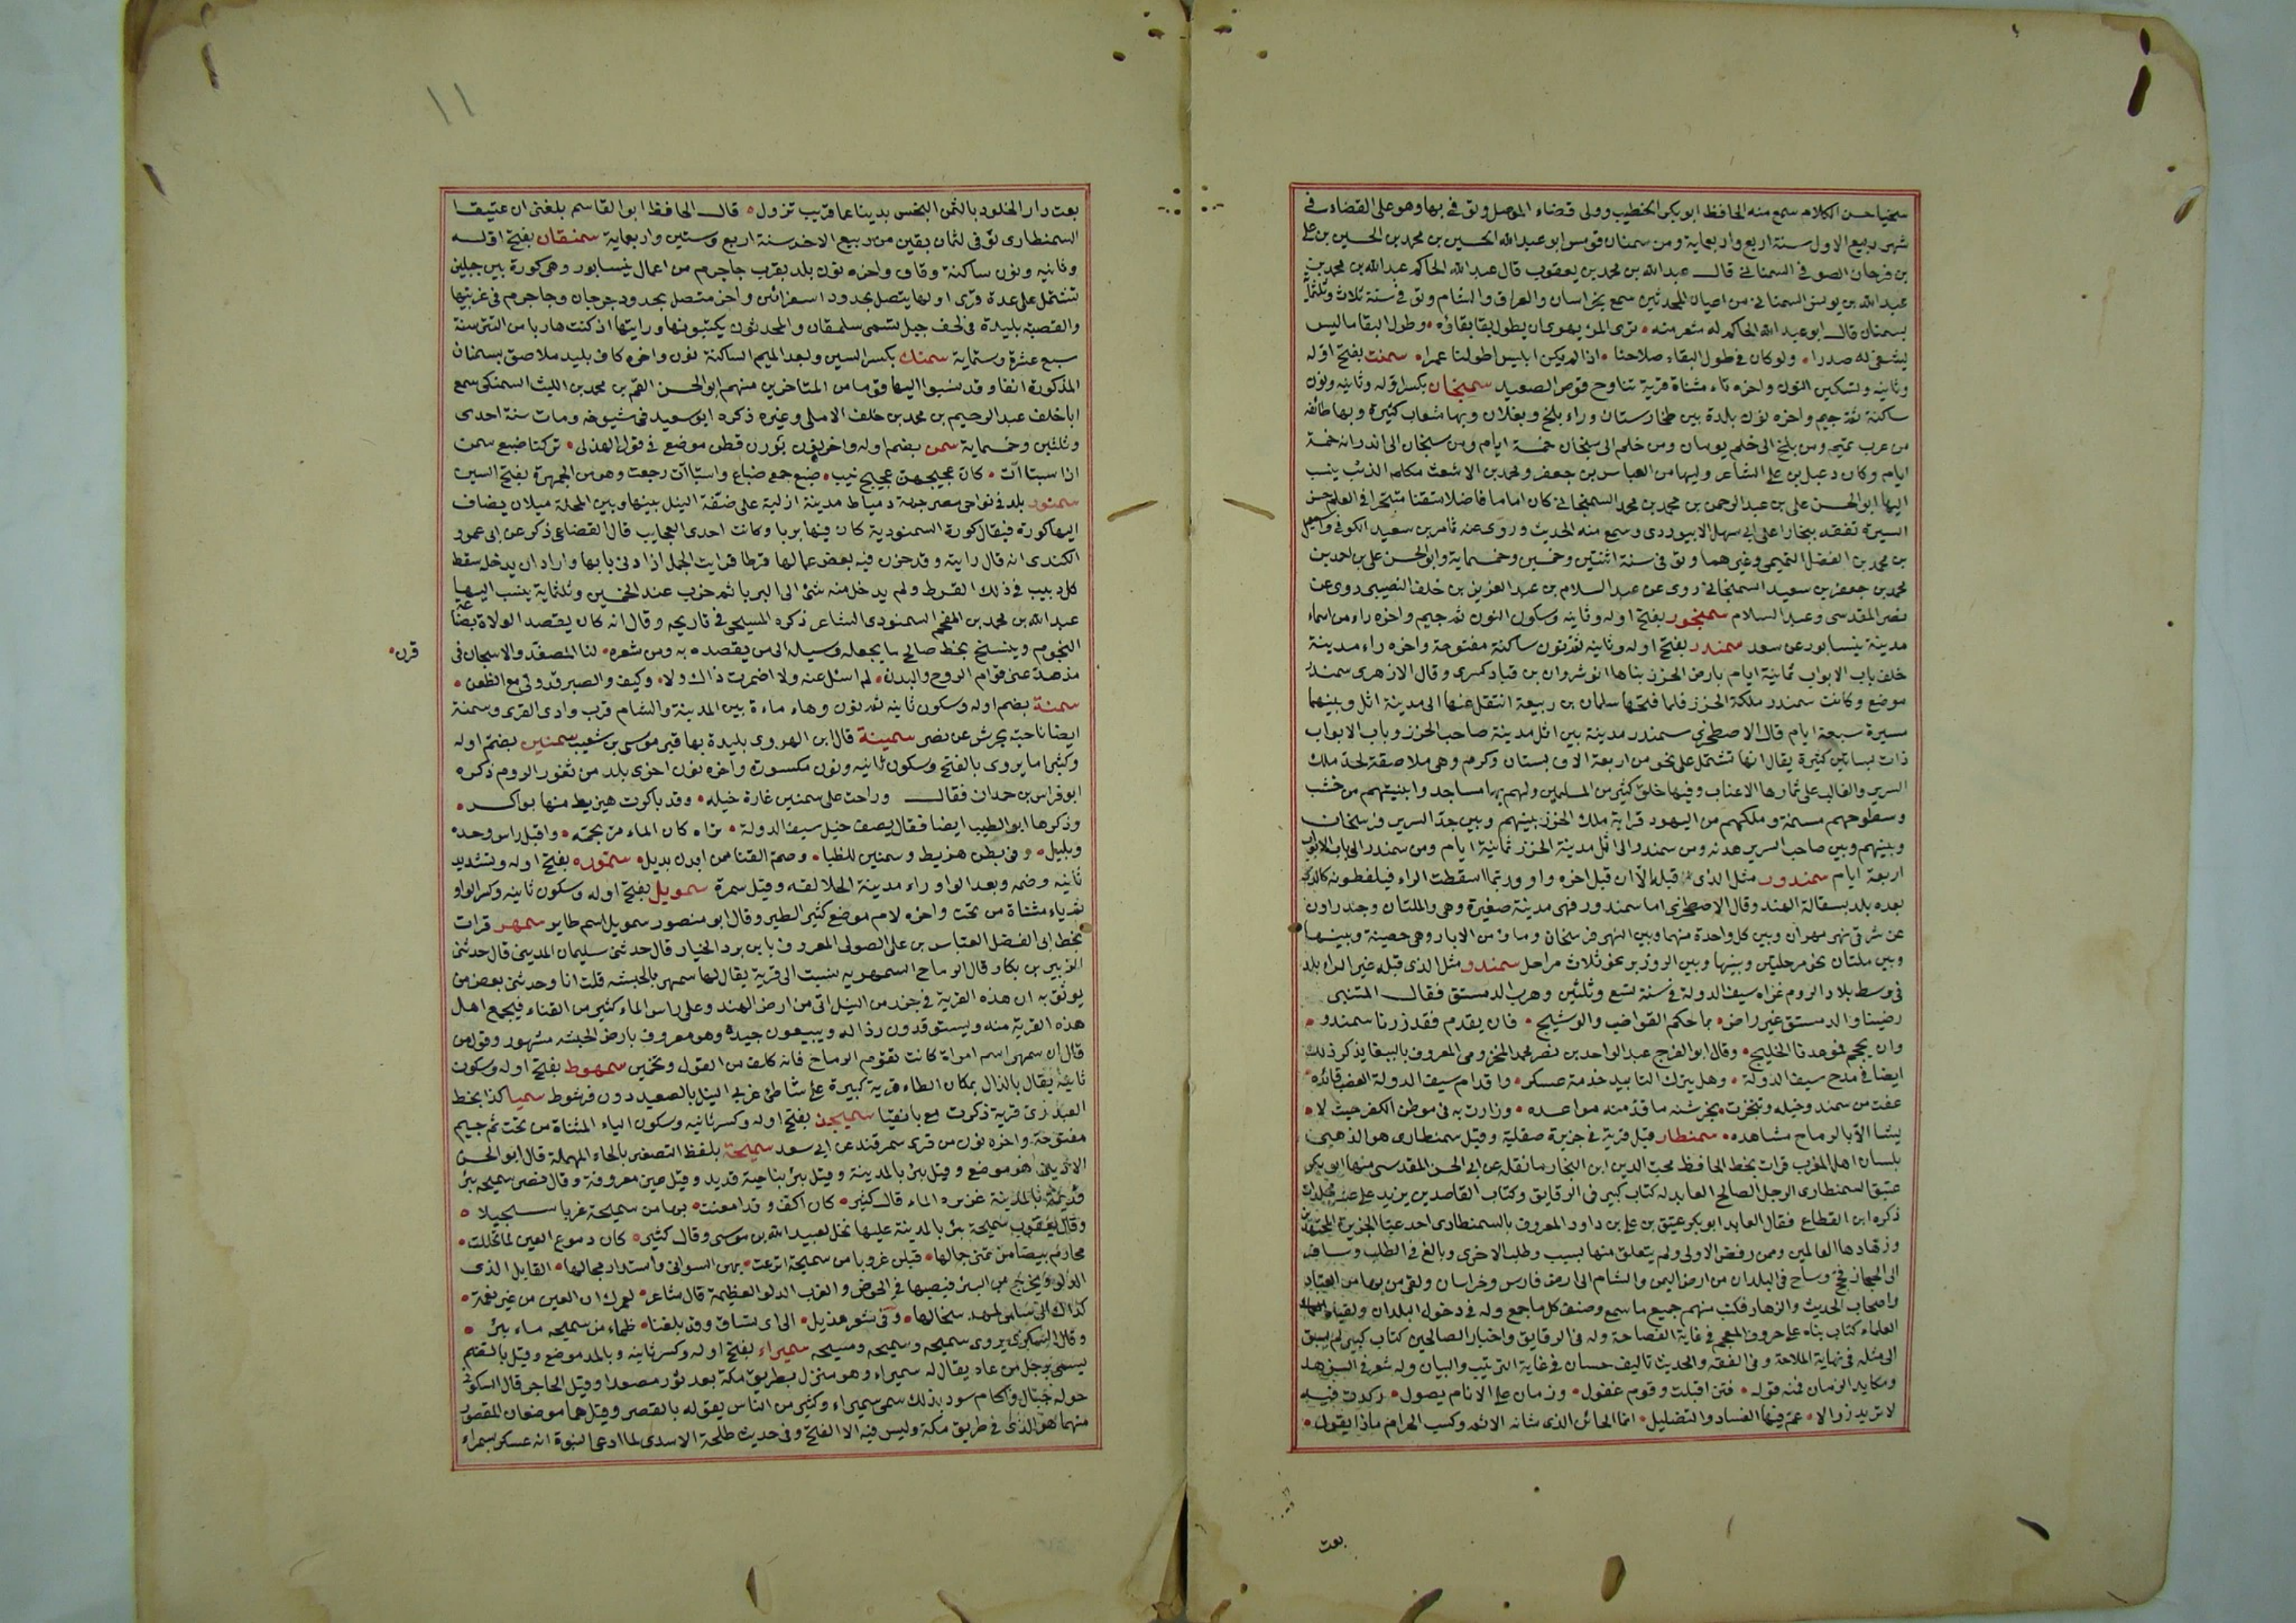 سخيا حسن الكلام سمع منه الحافظ ابو بكر الخطيب وولى قضاء الموصل وتوفى بها وهو على القضاء فى
شهر ربيع الاول سنة اربع واربعماية ومن سمنان قومس ابو عبد الله الحسين بن محمد بن الحسين بن على
بن فرحان الصوفى السمنانى قال عبد الله بن محمد بن يعقوب قال عبد الله الحاكم عبد الله بن محمد بن
عبد الله بن يونس السمنانى من اعيان المحدثين سمع بخراسان والعراق والشام وتوفى سنة ثلاث وثلثماية
بسمنان قال ابو عبد الله الحاكم له شعر منه ترى المرء يهوى ان يطول بقا بقاؤه وطول البقا ما ليس
يشفى له صدرا ولو كان فى طول البقاء صلاحنا اذا لم يكن ابليس اطولنا عمرا سمنت بفتح اوله
وثانيه وتسكين النون واخره تاء مثناة قرية تناوح قوص بالصعيد سمنجان بكسر اوله وثانيه ونون
ساكنة ثم جيم واخره نون بلدة بين طخارستان وراء بلخ وبغلان وبها شعاب كثيرة وبها طائفة
من عرب تميم ومن بلخ الى خلم يومان ومن خلم الى سمنجان خمسة ايام ومن سمنجان الى اندرابه خمسة
ايام وكان دعبل بن على الشاعر وليها من العباس بن جعفر ومحمد بن الاشعث مكلم الذئب ينسب
اليها ابو الحسن على بن عبد الرحمن بن محمد بن محمد السمنجانى كان اماما فاضلا متقنا متبحرا فى العلم حسن
السيرة تفقه ببخارا على ابى سهل الابيوردى وسمع منه الحديث وروى عنه ثامر بن سعيد الكوفى واسمعيل
بن محمد بن الفضل التميمى وغيرهما وتوفى سنة اثنتين وخمسين وخمسماية وابو الحسن على بن احمد بن
محمد بن جعفر بن سعيد السمنجانى روى عن عبد السلام بن عبد العزيز بن خلف النصيبى روى عن
نصر المقدسى وعبد السلام سمنجور بفتح اوله وثانيه وسكون النون ثم جيم واخره راء من اسماء
مدينة نيسابور عن سعد سمندر بفتح اوله وثانيه ثم نون ساكنة مفتوحة واخره راء مدينة
خلف باب الابواب ثمانية ايام بارض الخزر بناها انوشروان بن قباد كسرى وقال الازهرى سمندر
موضع وكانت سمندر ملكة الخزر فلما فتحها سلمان بن ربيعة انتقل عنها الى مدينة اتل وبينهما
مسيرة سبعة ايام قال الاصطخرى سمندر مدينة بين اتل مدينة صاحب الخزر وباب الابواب
ذات بساتين كثيرة يقال انها تشتمل على نحو من اربعة الاف بستان وكرم وهى ملاصقة لحد ملك
السرير والغالب على ثمارها الاعناب وفيها خلق كثير من المسلمين ولهم بها مساجد وابنيتهم من خشب
وسطوحهم مسنمة وملكهم من اليهود قرابة ملك الخزر بينهم وبين حد السرير فرسخان
وبينهم وبين صاحب السرير هدنة ومن سمندر الى اتل مدينة الخزر ثمانية ايام ومن سمندر الى باب الابواب
اربعة ايام سمندور مثل الذى قبله الا ان قبل اخره واو وربما اسقطت الراء فيلفظونه كالذى
بعده بلد بسفالة الهند وقال الاصطخرى اما سمندور فهى مدينة صغيرة وهى والملتان وجندراون
عن شرقى نهر مهران وبين كل واحدة منهما وبين النهر فرسخان وماؤهم من الابار وهى حصينة وبينها
وبين ملتان نحو مرحلتين وبينها وبين الروذ بر نحو ثلاث مراحل سمندو مثل الذى قبله غير الراء بلد
فى وسط بلاد الروم غزاه سيف الدولة فى سنة تسع وثلثين وهرب الدمستق فقال المتنبى
رضينا والدمستق غير راض بما حكم القواضب والوشيج فان يقدم فقد زرنا سمندو
وان يحجم فموعدنا الخليج وقال ابو الفرج عبد الواحد بن نصر بن محمد المخزومى المعروف بالببغا يذكر ذلك
ايضا فى مدح سيف الدولة وهل يترك التابيد خدمة عسكر واقدام سيف الدولة العضب قائده
عفت من سمندو خيله وتنجزت بخرشنة ما قد منه مواعده وزارت به فى موطن الكفر حيث لا
يشا الا بالرماح مشاهده سمنطار قيل قرية فى جزيرة صقلية وقيل سمنطارى هو الذهبى
بلسان اهل المغرب قرات بخط الحافظ محب الدين ابن النجار ما نقله عن ابى الحسن المقدسى منها ابو بكر
عتيق السمنطارى الرجل الصالح العابد له كتاب كبير فى الرقايق وكتاب القاصدين يزيد على عشر مجلدات
ذكره ابن القطاع فقال العابد ابو بكر عتيق بن على بن داود المعروف بالسمنطارى احد عباد الجزيرة المجتهدين
وزهادها العالمين وممن رفض الاولى ولم يتعلق منها بسبب وطلب الاخرى وبالغ فى الطلب وسافر
الى الحجاز فحج وساح فى البلدان من ارض اليمن والشام الى ارض فارس وخراسان ولقى من بها من العباد
واصحاب الحديث والزهاد فكتب عنهم جميع ما سمع وصنف كل ما جمع وله فى دخول البلدان ولقياه
العلماء كتاب بناه على حروف المعجم فى غاية الفصاحة وله فى الرقايق واخبار الصالحين كتاب كبير لم يسبق
الى مثله فى نهاية الملاحة وفى الفقه والحديث تاليف حسان فى غاية الترتيب والبيان وله شعر فى الزهد
ومكايد الزمان فمنه قوله فتن اقبلت وقوم غفول وزمان على الانام يصول ركدت فيه
لا تريد زوالا عم فيها الفساد والتضليل انما الخائن الذى شانه الاثم وكسب الحرام ماذا يقول
بعت
١١
بعت دار الخلود بالثمن البخس بدينا عما قريب تزول قال الحافظ ابو القاسم بلغنى ان عتيقا
السمنطارى توفى لثمان بقين من ربيع الاخر سنة اربع وستين واربعماية سمنقان بفتح اوله
وثانيه ونون ساكنة وقاف واخره نون بلد بقرب جاجرم من اعمال نيسابور وهى كورة بين جبلين
تشتمل على عدة قرى اولها يتصل بحدود اسفرائن واخر متصل بحدود جرجان وجاجرم فى غربيها
والقصبة بليدة فى لحف جبل تسمى سملقان والمحدثون يكتبونها ورايتها اذ كنت هاربا من التتر سنة
سبع عشرة وستماية سمنك بكسر السين وبعد الميم الساكنة نون واخره كاف بليد ملاصق بسمنان
المذكورة انفا وقد نسبوا اليها قوما من المتاخرين منهم ابو الحسن القسم بن محمد بن الليث السمنكى سمع
ابا خلف عبد الرحيم بن محمد بن خلف الاملى وغيره ذكره ابو سعيد فى شيوخه ومات سنة احدى
وثلثين وخمسماية سمن بضم اوله واخره نون بوزن قطن موضع فى قول الهذلى تركنا ضبع سمن
اذا سبتاات كان عجيجهن عجيج نيب ضبع جمع ضباع واستاات رجعت وهو من الجمهرة بفتح السين
سمنود بلد فى نواحى مصر جهة دمياط مدينة ازلية على ضفة النيل بينها وبين المحلة ميلان يضاف
اليها كورة فيقال كورة السمنودية كان فيها بربا وكانت احدى العجايب قال القضاعى ذكر عن ابى عمرو
الكندى انه قال رايته وقد خزن فيه بعض عمالها قرطا فرايت الجمل اذا دنى بابها واراد ان يدخل سقط
كل دبيب فى ذلك القرط ولم يدخل منه شئ الى البربا ثم خرب عند الخمسين وثلثماية ينسب اليها
عبد الله بن محمد بن المفخم السمنودى الشاعر ذكره المسيحى فى تاريخه وقال انه كان يقصد الولاة بصناعة
النجوم وينسخ بخط صالح ما يجعله وسيله الى من يقصده به ومن شعره لنا المصفد والاسجان فى قرن
مذ صد عنى قوام الروح والبدن لم اسئل عنه ولا اضمرت ذاك ولا وكيف والصبر قد ولى مع الظعن
سمنة بضم اوله وسكون ثانيه ثم نون وهاء ماءة بين المدينة والشام قرب وادى القرى وسمنة
ايضا ناحية بجرش عن نصر سمينة قال ابن الهروى بليدة بها قبر موسى بن شعيب سمنين بضم اوله
وكثيرا ما يروى بالفتح وسكون ثانيه ونون مكسورة واخره نون اخرى بلد من ثغور الروم ذكره
ابو فراس بن حمدان فقال وراحت على سمنين غارة خيله وقد باكرت هنزيط منها بواكر
وذكرها ابو الطيب ايضا فقال يصف خيل سيف الدولة تراه كان الماء مر بجسمه واقبل راس وحده
وبليل وفى بطن هنزيط وسمنين للظبا وصم القنا ممن ابدن بديل سمّوره بفتح اوله وتشديد
ثانيه وضمه وبعد الواو راء مدينة الجلالقه وقيل سمرة سمويل بفتح اوله وسكون ثانيه وكسر الواو
ثم ياء مثناة من تحت واخره لام موضع كثير الطير وقال ابو منصور سمويل اسم طاير سمهر قرات
بخط ابى الفضل العباس بن على الصولى المعروف بابن برد الخيار قال حدثنى سليمان المدينى قال حدثنى
الزبير بن بكار قال الرماح السمهرية نسبت الى قرية يقال لها سمهر بالحبشه قلت انا وحدثنى بعض من
يوثق به ان هذه القرية فى جزر من النيل اتى من ارض الهند وعلى راس الماء كثير من القناء فيجمع اهل
هذه القرية منه ويستوقدون رذاله ويبيعون جيده وهو معروف بارض الحبشه مشهور وقول من
قال ان سمهر اسم امراة كانت تقوم الرماح فانه كلف من القول وتخمين سمهوط بفتح اوله وسكون
ثانيه يقال بالدال مكان الطاء قرية كبيرة على شاطئ غربى النيل بالصعيد دون فرشوط سميا كذا بخط
العبدرى قرية ذكرت مع بانقيا سميجن بفتح اوله وكسر ثانيه وسكون الياء المثناة من تحت ثم جيم
مفتوحة واخره نون من قرى سمرقند عن ابى سعد سميحة بلفظ التصغير بالحاء المهملة قال ابو الحسن
الاديبى هو موضع وقيل بئر بالمدينة وقيل بئر بناحية قديد وقيل عين معروفة وقال نصر سميحه بئر
قديمة بالمدينة غزيره الماء قال كثير كان اكف وقد امعنت بها من سميحة غربا سجيلا
وقال يعقوب سميحة بئر بالمدينة عليها نخل لعبيد الله بن موسى وقال كثير كان دموع العين لما تخللت
مخارم بيضا من تمنى جمالها قبلن غروبا من سميحة اترعت بهن السوانى واستدار محالها القابل الذى
الدلو ويخرج من البئر فيصبها فى الحوض والغرب الدلو العظيمة قال شاعر لعمرك ان العين من غير نعمة
كذاك الى سلمى لمهد سجالها وفى شعر هذيل الى اى نساق وقد بلغنا ظماء من سميحه ماء بئر
وقال السكرى يروى سميحه وسميحه ومسيحه سميراء بفتح اوله وكسر ثانيه وبالمد موضع وقيل بالقصر
يسمى برجل من عاد يقال له سميراء وهو منزل بطريق مكة بعد توز مصعدا وقيل الحاجر قال السكونى
حوله جبال واكام سود بذلك سمى سميراء وكثير من الناس يقوله بالقصر وقيل هما موضعان المقصور
منهما هو الذى فى طريق مكة وليس فيه الا الفتح وفى حديث طلحة الاسدى لما ادعى النبوة انه عسكر بسمراء